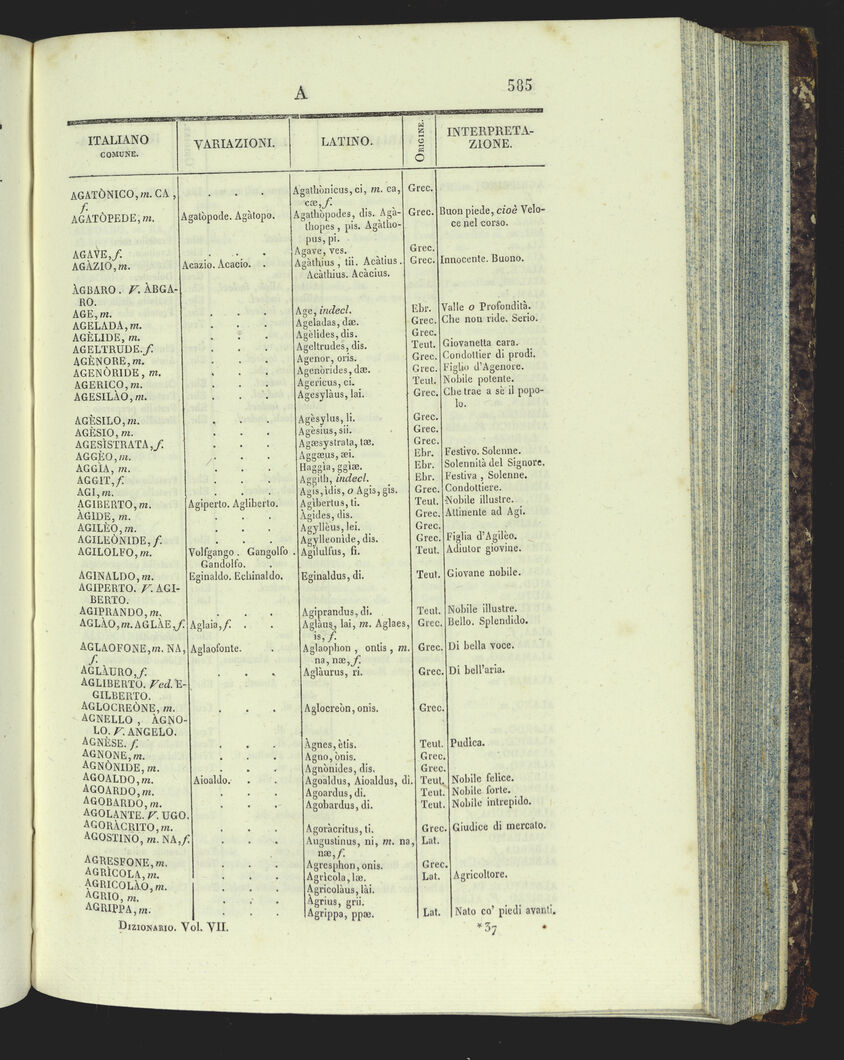 A
585
ITALIANO COMUNE. VARIAZIONI. LATINO. ORIGINE. INTERPRETA-
ZIONE.
AGATÒNICO, m. CA, . . . Agathònicus, ci, m. ca, Grec.
f. cæ, f.
AGATÒPEDE, m. Agatòpode. Agàtopo. Agathòpodes, dis. Agà- Grec. Buon piede, cioè Velo-
thopes, pis. Agàtho- ce nel corso.
pus, pi.
AGAVE, f. . . . Agave, ves. Grec.
AGÀZIO, m. Acazio. Acacio. . Agàthius, tii. Acàtius. Grec. Innocente. Buono.
Acàthius. Acàcius.
ÀGBARO. V. ÀBGA-
RO.
AGE, m. . . . Age, indecl. Ebr. Valle o Profondità.
AGELADA, m. . . . Ageladas, dæ. Grec. Che non ride. Serio.
AGÈLIDE, m. . . . Agèlides, dis. Grec.
AGELTRUDE. f. . . . Ageltrudes, dis. Teut. Giovanetta cara.
AGÈNORE, m. . . . Agenor, oris. Grec. Condottier di prodi.
AGENÒRIDE, m. . . . Agenòrides, dæ. Grec. Figlio d'Agenore.
AGERICO, m. . . . Agericus, ci. Teut. Nobile potente.
AGESILÀO, m. . . . Agesylàus, lai. Grec. Che trae a sè il popo-
lo.
AGÈSILO, m. . . . Agèsylus, li. Grec.
AGÈSIO, m. . . . Agèsius, sii. Grec.
AGESÌSTRATA, f. . . . Agæsystrata, tæ. Grec.
AGGÈO, m. . . . Aggæus, æi. Ebr. Festivo. Solenne.
AGGÌA, m. . . . Haggìa, ggiæ. Ebr. Solennità del Signore.
AGGIT, f. . . . Aggith, indecl. Ebr. Festiva, Solenne.
AGI, m. . . . Agis, ìdis, o Agis, gis. Grec. Condottiere.
AGIBERTO, m. Agiperto. Agliberto. Agibertus, ti. Teut. Nobile illustre.
ÀGIDE, m. . . . Àgides, dis. Grec. Attinente ad Agi.
AGILÈO, m. . . . Agyllèus, lei. Grec.
AGILEÒNIDE, f. . . . Agylleonìde, dis. Grec. Figlia d'Agilèo.
AGILOLFO, m. Volfgango. Gangolfo. Agilulfus, fi. Teut. Adiutor giovine.
Gandolfo. .
AGINALDO, m. Eginaldo. Echinaldo. Eginaldus, di. Teut. Giovane nobile.
AGIPERTO. V. AGI-
BERTO.
AGIPRANDO, m. . . . Agiprandus, di. Teut. Nobile illustre.
AGLÀO, m. AGLÀE, f. Aglaia, f. . . Aglàus, lai, m. Aglaes, Grec. Bello. Splendido.
is, f.
AGLAOFONE, m. NA, Aglaofonte. . Aglaophon, ontis, m. Grec. Di bella voce.
f. na, næ, f.
AGLÀURO, f. . . . Aglàurus, ri. Grec. Di bell'aria.
AGLIBERTO. Ved. E-
GILBERTO.
AGLOCREÒNE, m. . . . Aglocreòn, onis. Grec.
AGNELLO, ÀGNO-
LO. V. ANGELO.
AGNÈSE. f. . . . Àgnes, ètis. Teut. Pudica.
AGNONE, m. . . . Agno, ònis. Grec.
AGNÒNIDE, m. . . . Agnònides, dis. Grec.
AGOALDO, m. Aioaldo. . . Agoaldus, Aioaldus, di. Teut. Nobile felice.
AGOARDO, m. . . . Agoardus, di. Teut. Nobile forte.
AGOBARDO, m. . . . Agobardus, di. Teut. Nobile intrepido.
AGOLANTE. V. UGO.
AGORÀCRITO, m. . . . Agoràcritus, ti. Grec. Giudice di mercato.
AGOSTINO, m. NA, f. . . . Augustinus, ni, m. na, Lat.
næ, f.
AGRESFONE, m. . . . Agresphon, onis. Grec.
AGRÌCOLA, m. . . . Agrìcola, læ. Lat. Agricoltore.
AGRICOLÀO, m. . . . Agricolàus, lài.
ÀGRIO, m. . . . Àgrius, grii.
AGRIPPA, m. . . . Agrippa, ppæ. Lat. Nato co' piedi avanti.
DIZIONARIO. Vol. VII. *37